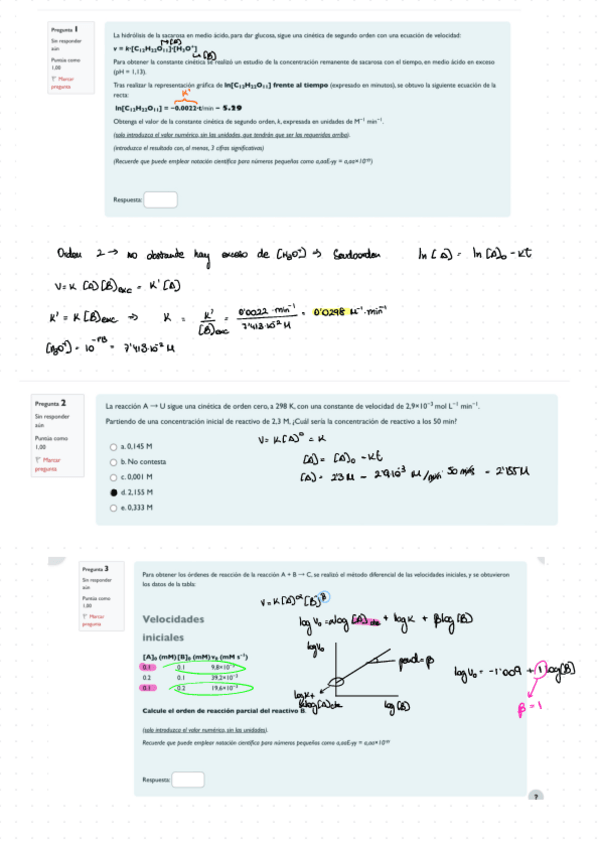 Pregunta 1
Sin responder aún
Puntúa como 1,00
Marcar pregunta
La hidrólisis de la sacarosa en medio ácido, para dar glucosa, sigue una cinética de segundo orden con una ecuación de velocidad:
v = k·[C₁₂H₂₂O₁₁]·[H₃O⁺]
→[A]
↳[B]
Para obtener la constante cinética se realizó un estudio de la concentración remanente de sacarosa con el tiempo, en medio ácido en exceso (pH = 1,13).
Tras realizar la representación gráfica de ln[C₁₂H₂₂O₁₁] frente al tiempo (expresado en minutos), se obtuvo la siguiente ecuación de la recta:
K'
ln[C₁₂H₂₂O₁₁] = −0.0022·t/min − 5.29
Obtenga el valor de la constante cinética de segundo orden, k, expresada en unidades de M⁻¹ min⁻¹.
(solo introduzca el valor numérico, sin las unidades, que tendrán que ser las requeridas arriba).
(introduzca el resultado con, al menos, 3 cifras significativas)
(Recuerde que puede emplear notación científica para números pequeños como a,aaE-yy = a,aa×10⁻ʸʸ)
Respuesta:
Orden 2 → no obstante hay exceso de [H₃O⁺] ⇒ Seudoorden ln [A] = ln [A]₀ - Kt
V = K [A] [B]exc = K' [A]
K' = K [B]exc ⇒ K = K'/[B]exc = 0'0022 min⁻¹/7'413·10⁻² M = 0'0298 M⁻¹·min⁻¹
[H₃O⁺] = 10^-PH = 7'413·10⁻² M
Pregunta 2
Sin responder aún
Puntúa como 1,00
Marcar pregunta
La reacción A → U sigue una cinética de orden cero, a 298 K, con una constante de velocidad de 2,9×10⁻³ mol L⁻¹ min⁻¹.
Partiendo de una concentración inicial de reactivo de 2,3 M, ¿Cuál sería la concentración de reactivo a los 50 min?
V = K[A]⁰ = K
a. 0,145 M
[A] = [A]₀ - Kt
b. No contesta
c. 0,001 M
[A] = 2'3 M - 2'9·10⁻³ M/min · 50 min = 2'155 M
d. 2,155 M
e. 0,333 M
Pregunta 3
Sin responder aún
Puntúa como 1,00
Marcar pregunta
Para obtener los órdenes de reacción de la reacción A + B → C, se realizó el método diferencial de las velocidades iniciales, y se obtuvieron los datos de la tabla:
V = K[A]^α [B]^β
Velocidades iniciales
log V₀ = αlog [A]cte + log K + βlog [B]
log V₀
[A]₀ (mM) [B]₀ (mM) v₀ (mM s⁻¹)
0.1 0.1 9,8×10⁻³
0.2 0.1 39,2×10⁻³
0.1 0.2 19,6×10⁻³
pend = β
log V₀ = -1'009 + 1 log [B]
β = 1
log K + αlog [A]cte
log [B]
Calcule el orden de reacción parcial del reactivo B.
(solo introduzca el valor numérico, sin las unidades).
Recuerde que puede emplear notación científica para números pequeños como a,aaE-yy = a,aa×10⁻ʸʸ
Respuesta:
?